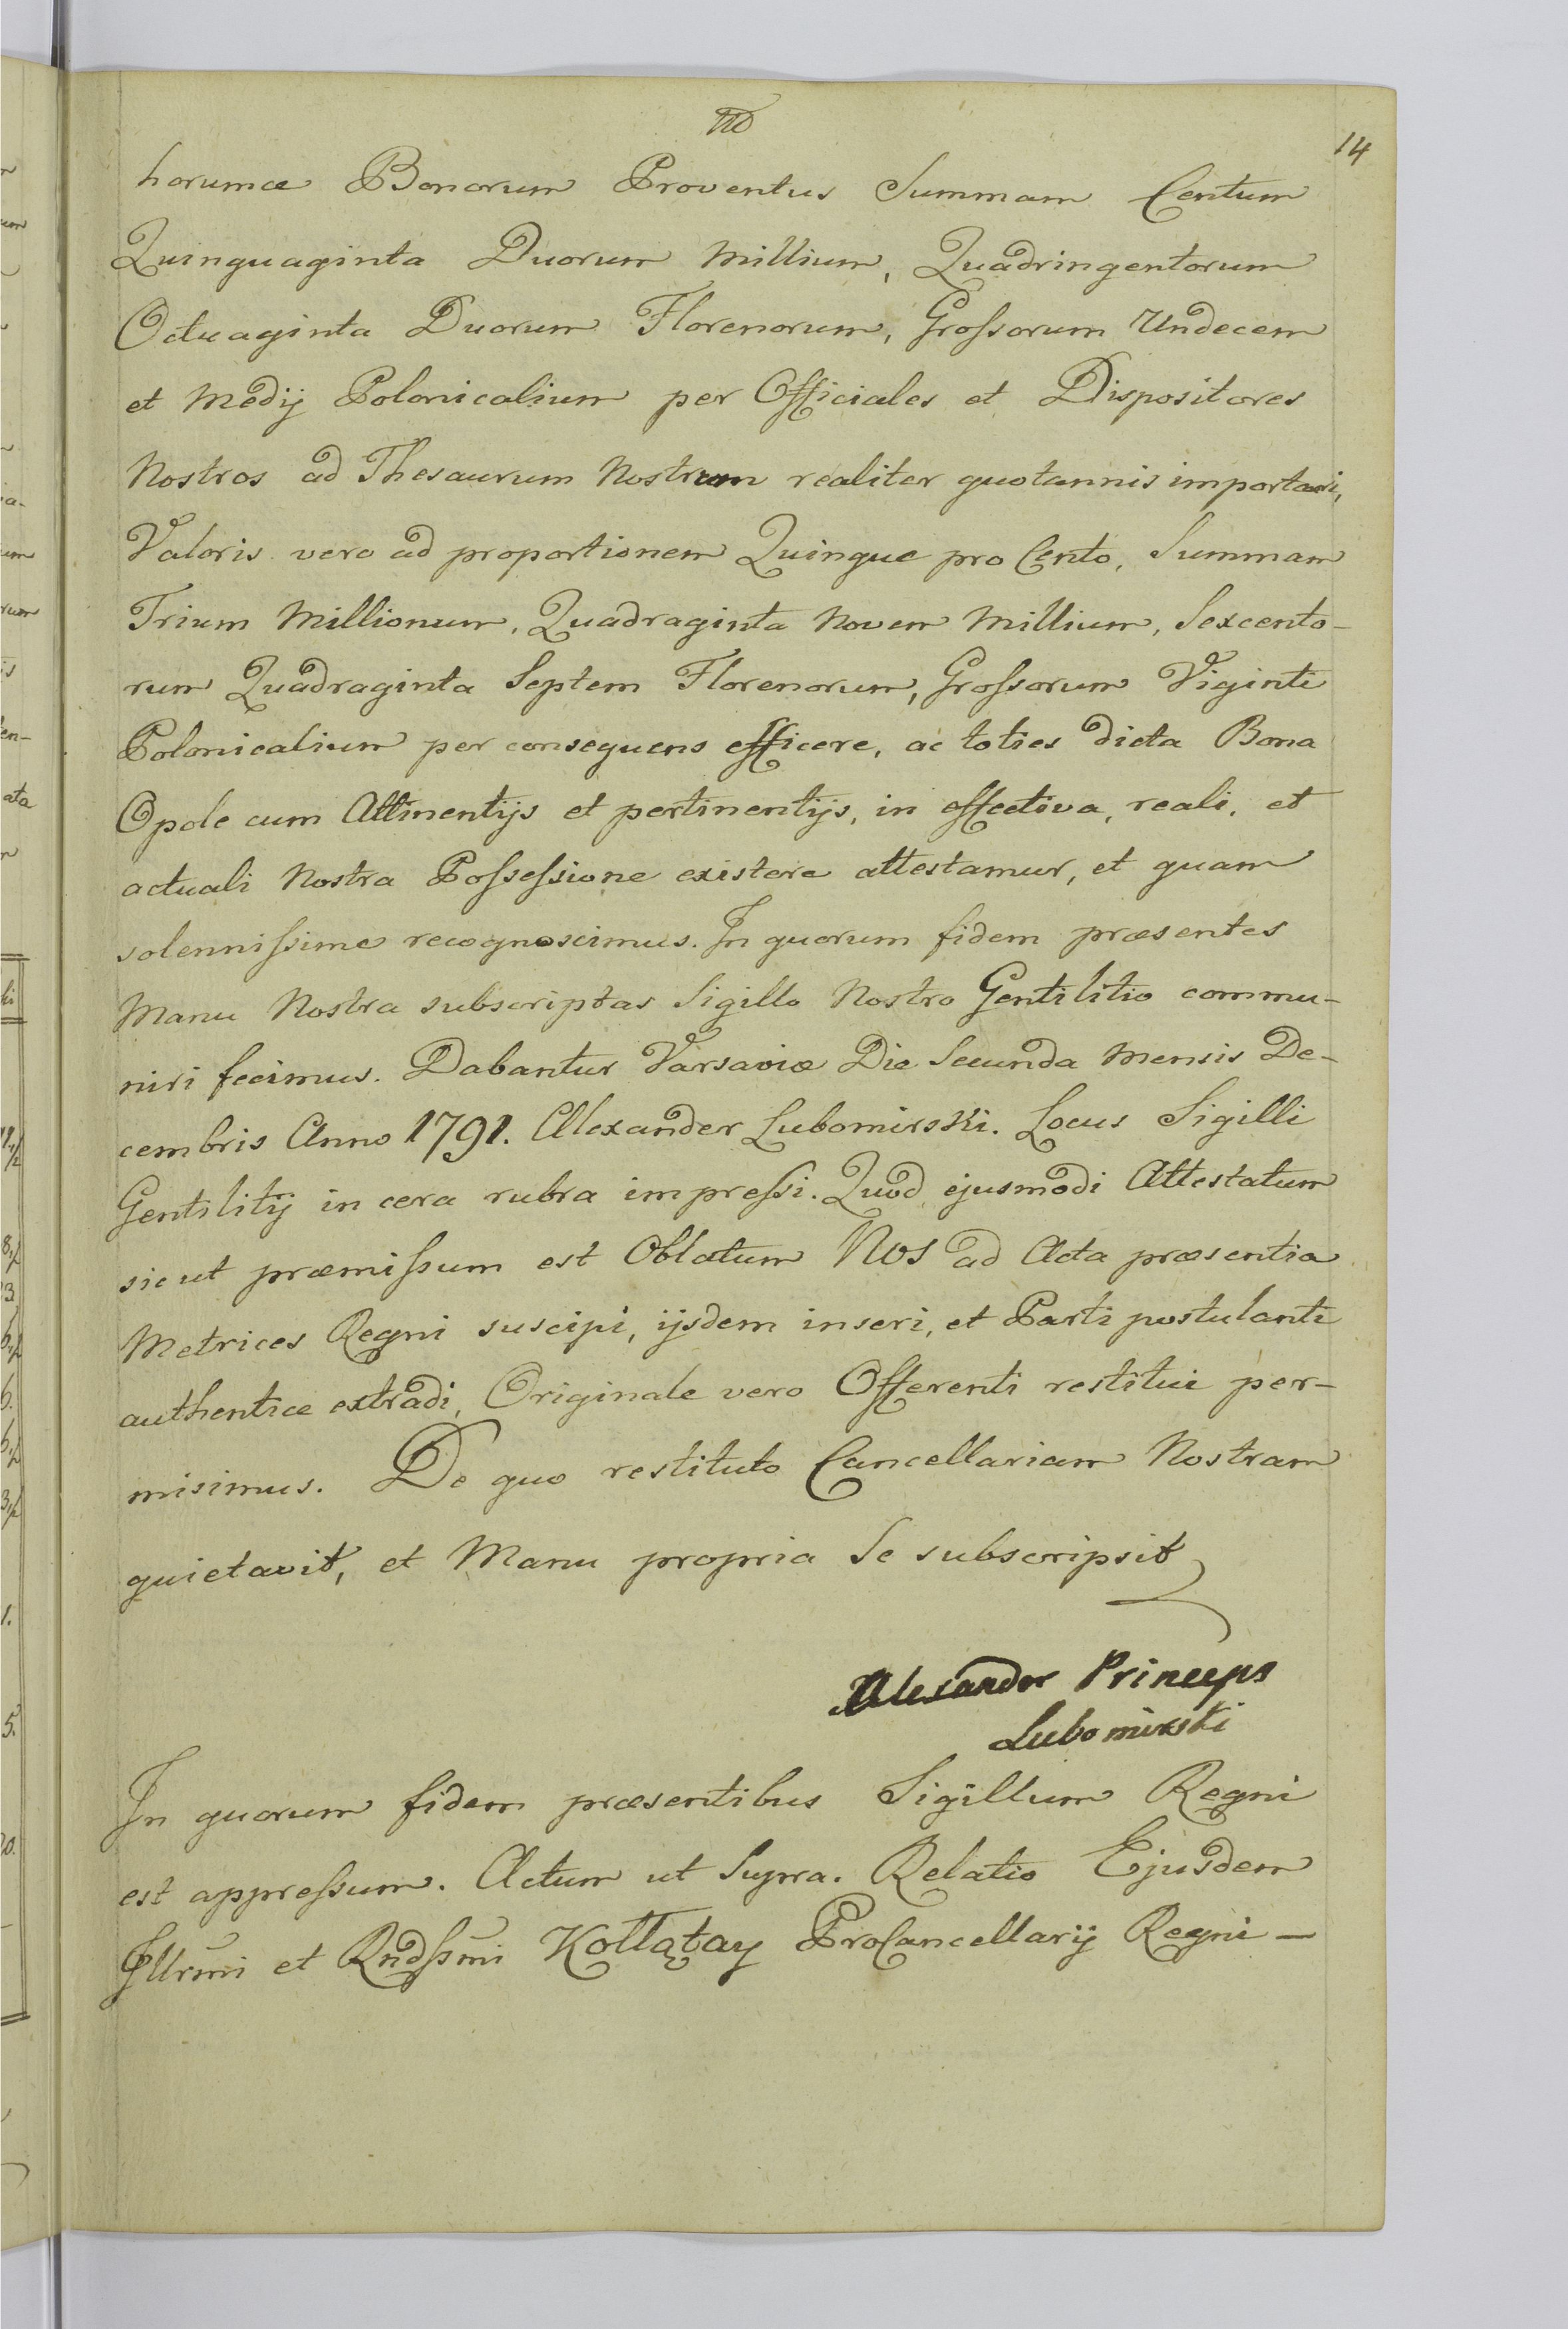 14
horumce Bonorum Proventus Summam Centum
Quinquaginta Duorum Millium, Quadringentorum
Octuaginta Duorum Florenorum, Groſsorum Undecem
et Medij Polonicalium per Officiales et Dispositores
Nostros ad Thesaurum Nostrum realiter quotannis importari,
Valoris vero ad proportionem Quinque pro Cento, Summam
Trium Millionum, Quadraginta Novem Millium, Sexcento-
rum Quadraginta Septem Florenorum, Groſsorum Viginti
Polonicalium per consequens efficere, ac toties dicta Bona
Opole cum Attinentijs et pertinentijs, in effectiva, reali, et
actuali Nostra Poſseſsione existere attestamur, et quam
solenniſsime recognoscimus. In quorum fidem præsentes
Manu Nostra subscriptas Sigillo Nostro Gentilitio commu-
niri fecimus. Dabantur Varsaviæ Die Secunda Mensis De-
cembris Anno 1791. Alexander Lubomirski. Locus Sigilli
Gentilitij in cera rubra impreſsi. Quod ejusmodi Attestatum
sicut præmiſsum est Oblatum NOS ad Acta præsentia
Metrices Regni suscipi, ijsdem inseri, et Parti postulanti
authentice extradi, Originale vero Offerenti restitui per-
misimus. De quo restituto Cancellariam Nostram
quietavit, et Manu propria Se subscripsit
Alexander Princeps
Lubomirski
In quorum fidem præsentibus Sigillum Regni
est appreſsum. Actum ut Supra. Relatio Ejusdem
Jllrm̃i et Rñdſsmi Kołłątay ProCancellarij Regni —